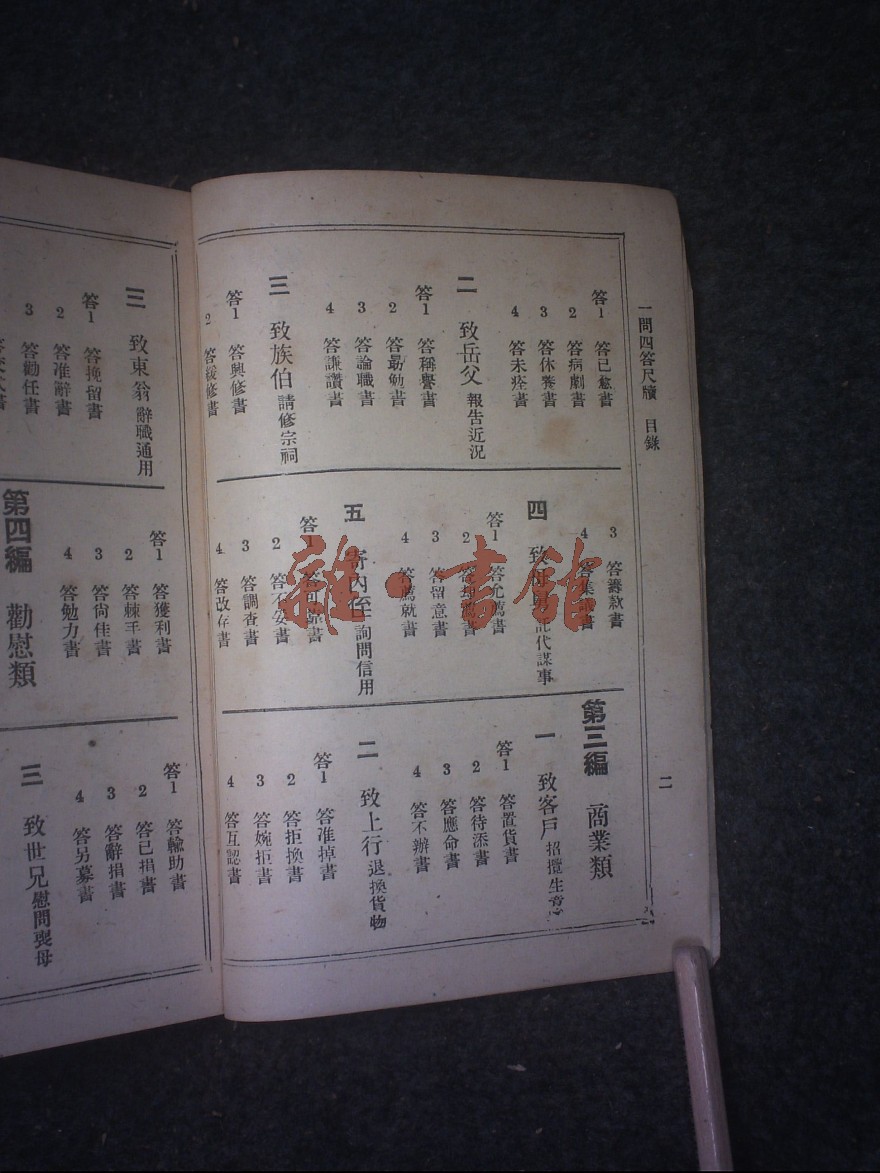 一問四答尺牘 目錄
二
答1 答已愈書
2 答病劇書
3 答休養書
4 答未痊書
二 致岳父 報告近況
答1 答稱譽書
2 答勗勉書
3 答論職書
4 答謙讚書
三 致族伯 請修宗祠
答1 答興修書
2 答緩修書
3 答籌款書
4 答集議書
四 致母舅 託代謀事
答1 答允薦書
2 答却薦書
3 答留意書
4 答薦就書
五 寄內侄 詢問信用
答1 答可靠書
2 答不妥書
3 答調查書
4 答改存書
第三編 商業類
一 致客戶 招攬生意
答1 答置貨書
2 答待添書
3 答應命書
4 答不辦書
二 致上行 退換貨物
答1 答准掉書
2 答拒換書
3 答婉拒書
4 答互認書
三 致東翁 辭職通用
答1 答挽留書
2 答准辭書
3 答勸任書
答1 答獲利書
2 答棘手書
3 答尙佳書
4 答勉力書
第四編 勸慰類
答1 答輸助書
2 答已捐書
3 答辭捐書
4 答另募書
三 致世兄 慰問喪母
雜·書館